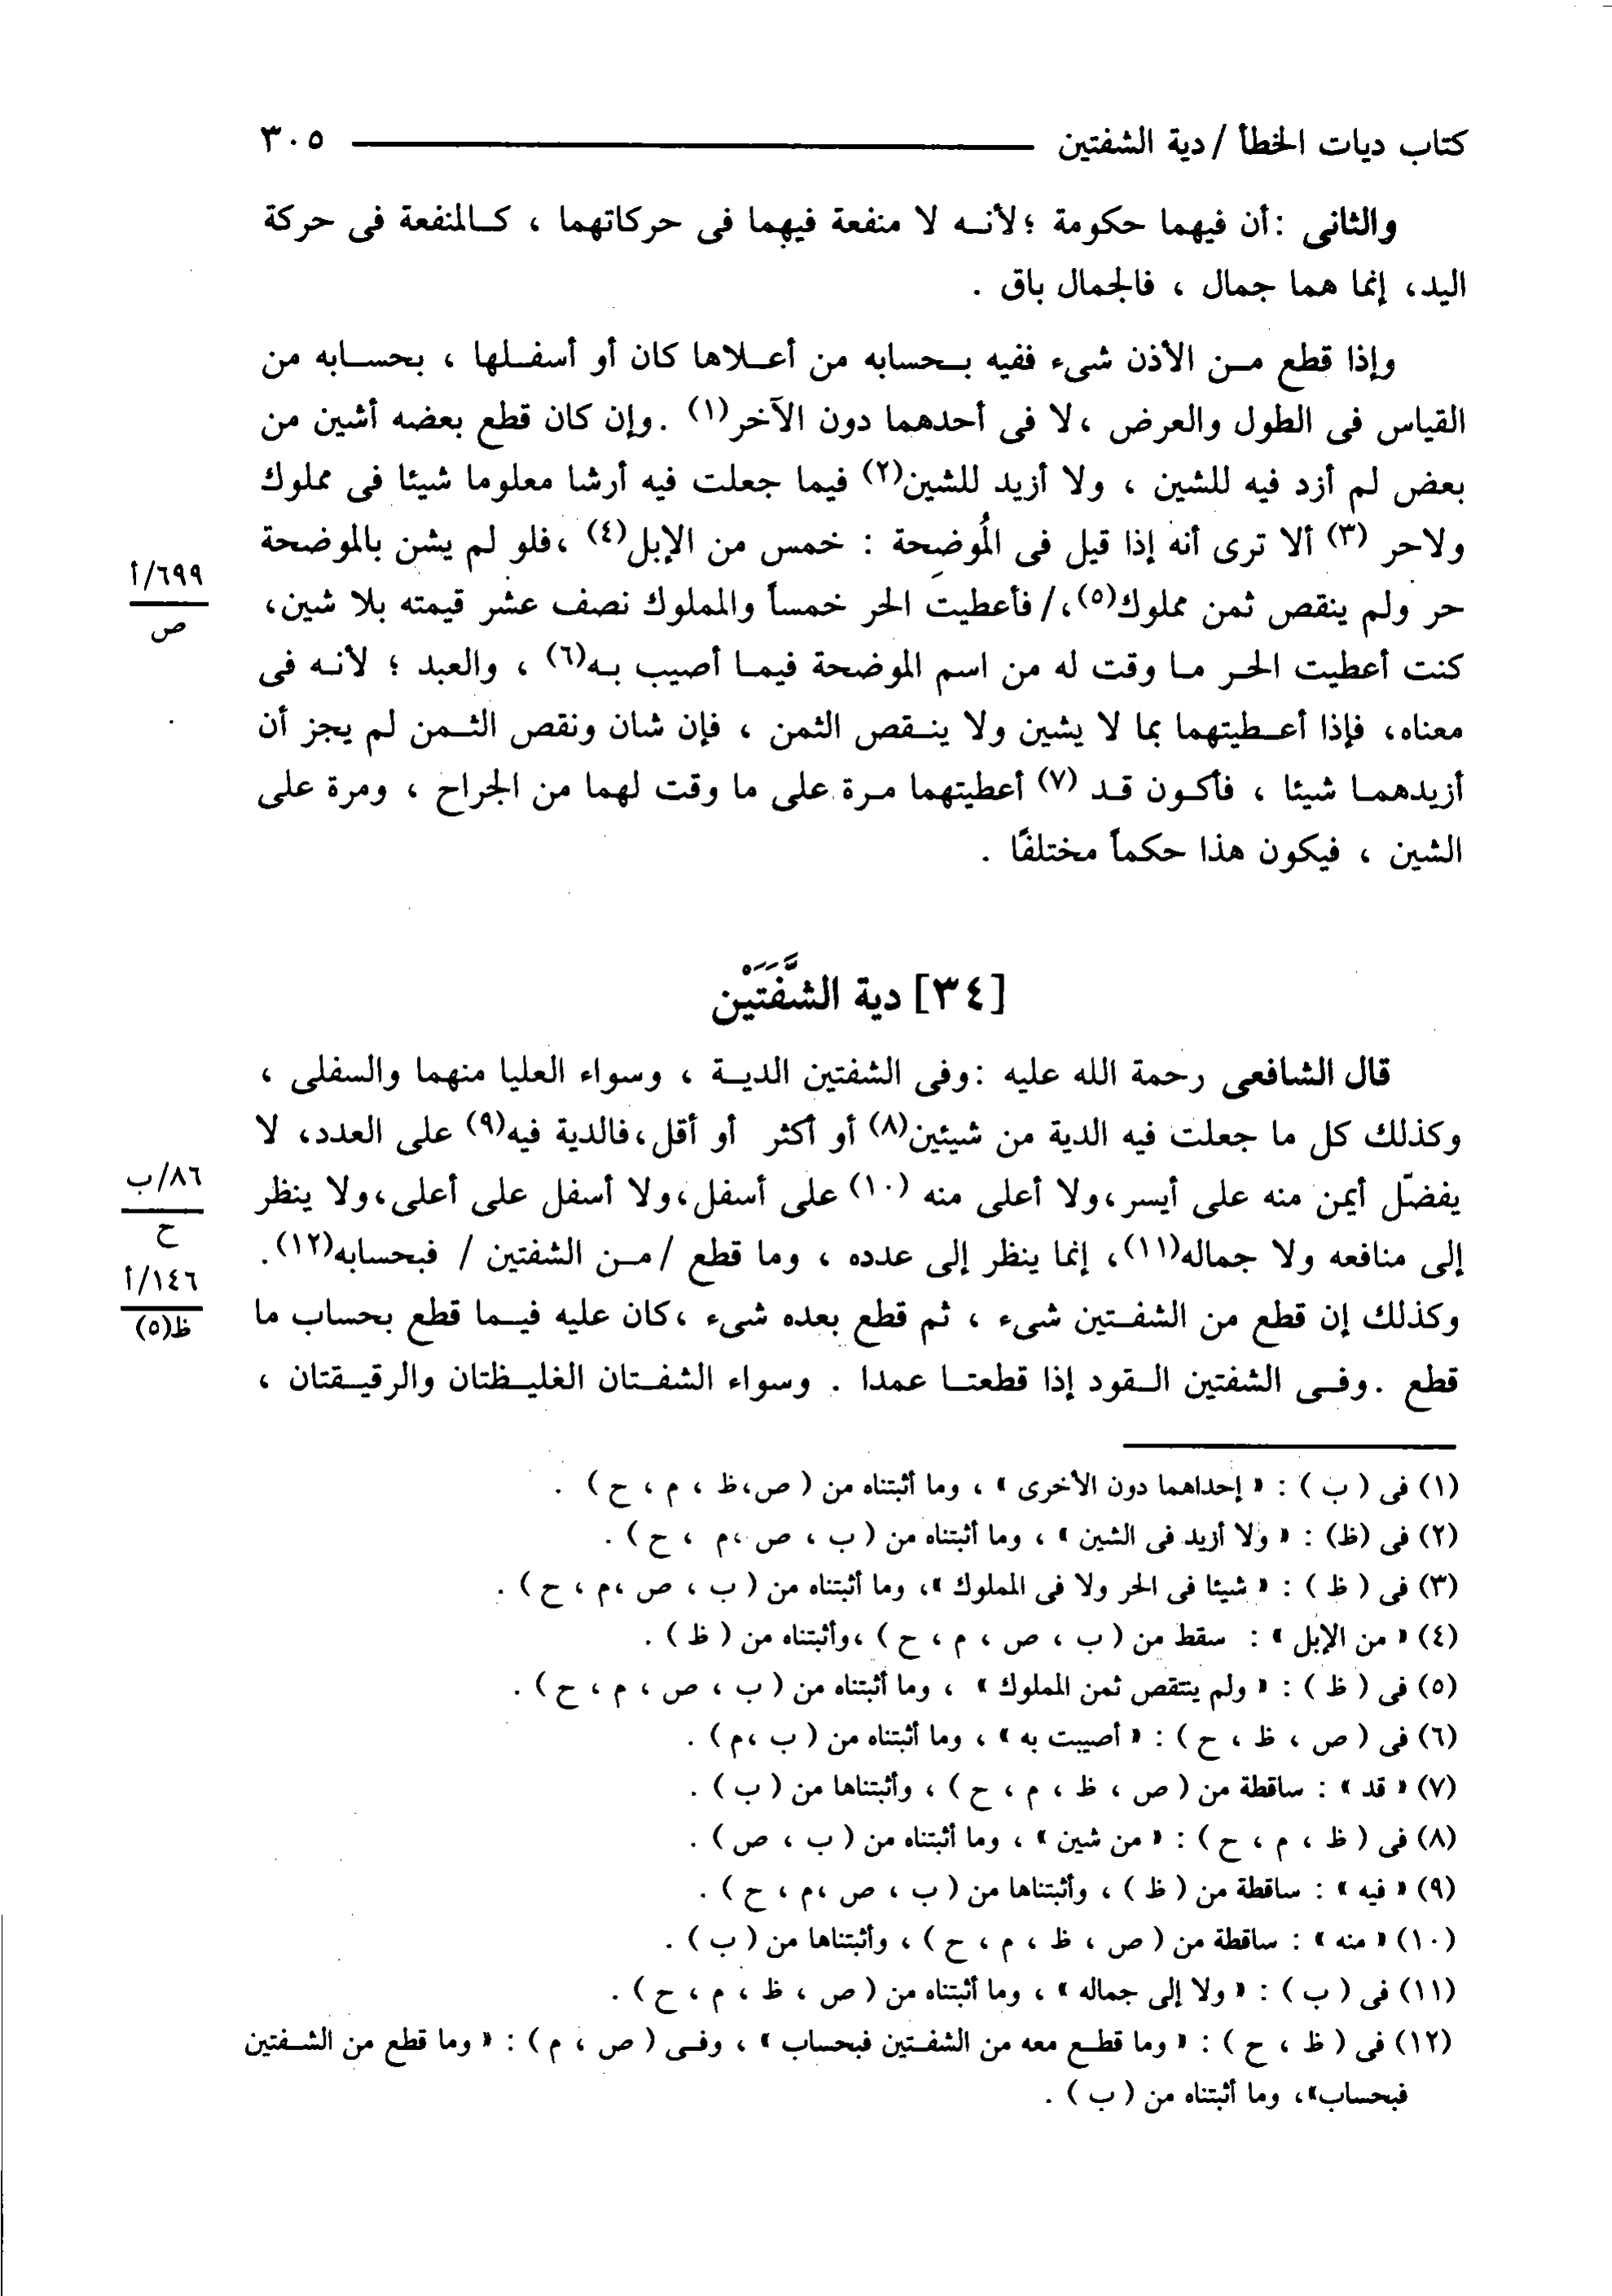 كتاب ديات الخطأ / دية الشفتين ٣٠٥
والثانى : أن فيهما حكومة ؛ لأنه لا منفعة فيهما فى حركاتهما ، كالمنفعة فى حركة
اليد، إنما هما جمال ، فالجمال باق .
وإذا قطع من الأذن شىء ففيه بحسابه من أعلاها كان أو أسفلها ، بحسابه من
القياس فى الطول والعرض ، لا فى أحدهما دون الآخر(١) . وإن كان قطع بعضه أشين من
بعض لم أزد فيه للشين ، ولا أزيد للشين(٢) فيما جعلت فيه أرشا معلوما شيئا فى مملوك
ولاحر (٣) ألا ترى أنه إذا قيل فى المُوضِحة : خمس من الإبل(٤) ، فلو لم يشن بالموضحة
٦٩٩/أ
ص
حر ولم ينقص ثمن مملوك(٥)،/ فأعطيت الحر خمساً والمملوك نصف عشر قيمته بلا شين،
كنت أعطيت الحر ما وقت له من اسم الموضحة فيما أصيب به(٦) ، والعبد ؛ لأنه فى
معناه، فإذا أعطيتهما بما لا يشين ولا ينقص الثمن ، فإن شان ونقص الثمن لم يجز أن
أزيدهما شيئا ، فأكون قد (٧) أعطيتهما مرة على ما وقت لهما من الجراح ، ومرة على
الشين ، فيكون هذا حكماً مختلفًا .
[٣٤] دية الشَّفَتَيْن
قال الشافعى رحمة الله عليه : وفى الشفتين الدية ، وسواء العليا منهما والسفلى ،
وكذلك كل ما جعلت فيه الدية من شيئين(٨) أو أكثر أو أقل، فالدية فيه(٩) على العدد، لا
يفضّل أيمن منه على أيسر، ولا أعلى منه (١٠) على أسفل، ولا أسفل على أعلى، ولا ينظر
٨٦/ب
ح
إلى منافعه ولا جماله(١١)، إنما ينظر إلى عدده ، وما قطع / من الشفتين / فبحسابه(١٢).
١٤٦/أ
ظ(٥)
وكذلك إن قطع من الشفتين شىء ، ثم قطع بعده شىء ، كان عليه فيما قطع بحساب ما
قطع . وفى الشفتين القود إذا قطعتا عمدا . وسواء الشفتان الغليظتان والرقيقتان ،
(١) فى ( ب ) : « إحداهما دون الأخرى » ، وما أثبتناه من ( ص، ظ ، م ، ح ) .
(٢) فى (ظ) : « ولا أزيد فى الشين » ، وما أثبتناه من ( ب ، ص ،م ، ح ) .
(٣) فى ( ظ ) : « شيئا فى الحر ولا فى المملوك »، وما أثبتناه من ( ب ، ص ،م ، ح ) .
(٤) « من الإبل » : سقط من ( ب ، ص ، م ، ح ) ،وأثبتناه من ( ظ ) .
(٥) فى ( ظ ) : « ولم ينتقص ثمن المملوك » ، وما أثبتناه من ( ب ، ص ، م ، ح ) .
(٦) فى ( ص ، ظ ، ح ) : « أصيبت به » ، وما أثبتناه من ( ب ،م ) .
(٧) « قد » : ساقطة من ( ص ، ظ ، م ، ح ) ، وأثبتناها من ( ب ) .
(٨) فى ( ظ ، م ، ح ) : « من شين » ، وما أثبتناه من ( ب ، ص ) .
(٩) « فيه » : ساقطة من ( ظ ) ، وأثبتناها من ( ب ، ص ،م ، ح ) .
(١٠) « منه » : ساقطة من ( ص ، ظ ، م ، ح ) ، وأثبتناها من ( ب ) .
(١١) فى ( ب ) : « ولا إلى جماله » ، وما أثبتناه من ( ص ، ظ ، م ، ح ) .
(١٢) فى ( ظ ، ح ) : « وما قطع معه من الشفتين فبحساب » ، وفى ( ص ، م ) : « وما قطع من الشفتين
فبحساب»، وما أثبتناه من ( ب ) .